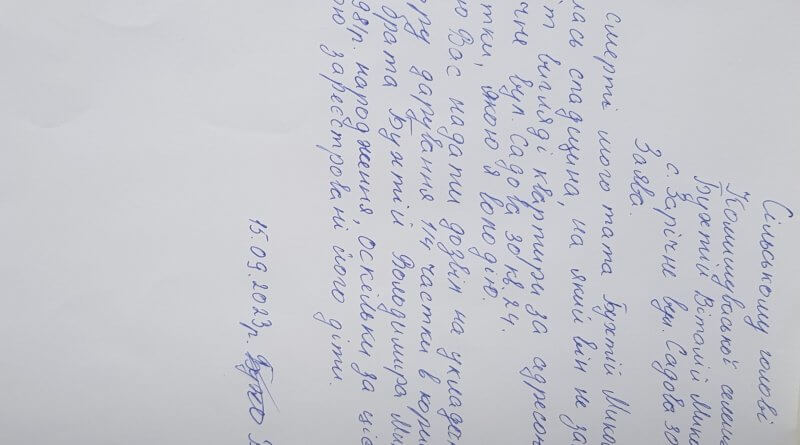 Сільському голові
Комишуваської селещ
Бухтій Віталій Мико
с. Зарічне вул. Садова 30
Заява.
смерті мого тата Бухтій Мико
лась спадщина, на який він не за
т вигляді квартири за адресою
чне вул. Садова 30 кв 24.
тки, якою я володію.
ю Вас надати дозвіл на укладан
ру дарування 1/4 частки в корис
брата Бухтій Володимира Ми
981р. народження, оскільки за ціє
ю зареєстровані його діти.
15.09.2023р.